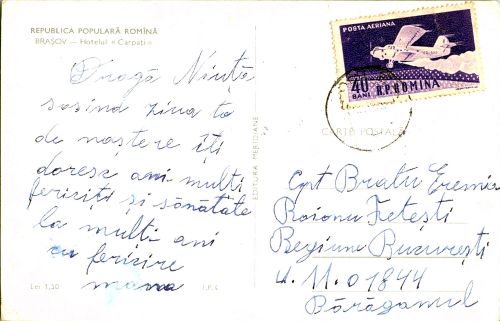 REPUBLICA POPULARĂ ROMÎNĂ
BRAȘOV — Hotelul « Carpați »
Dragă Nicuță
sosind ziua ta
de naștere îți
doresc ani mulți
fericiți și sănătate
la mulți ani
cu fericire
mama
Lei 1,30
I.P.4
EDITURA MERIDIANE
POSTA AERIANA
40
BANI
R.P.ROMINA
CARTE POSTALĂ
Cpt Bratu Eremia
Raionu Fetești
Regiune București
U. M. 01844
Bărăganul